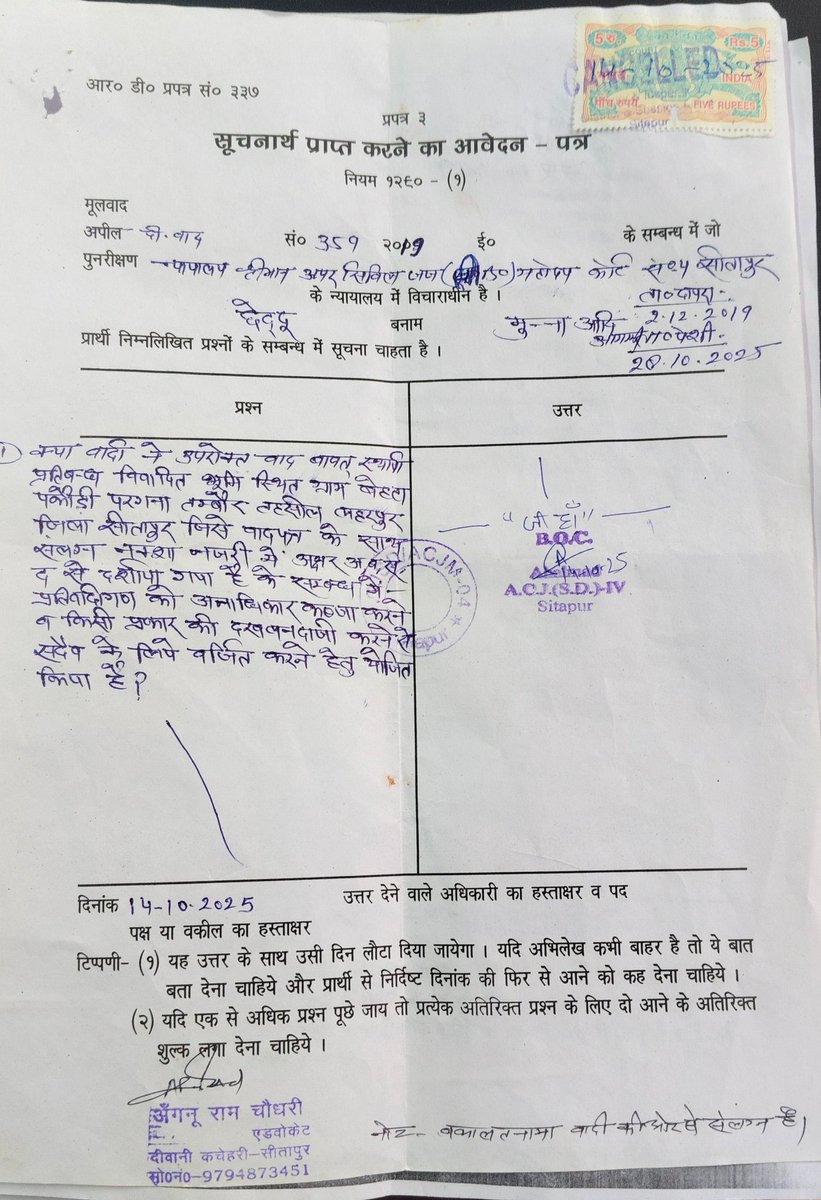 5 रु०
Rs.5
CANCELLED
14-10-2025
INDIA
पाँच रुपये
FIVE RUPEES
Sitapur
आर० डी० प्रपत्र सं० ३३७
प्रपत्र ३
सूचनार्थ प्राप्त करने का आवेदन – पत्र
नियम १२९० - (१)
मूलवाद
अपील दी. वाद सं० 359 २०19 ई० के सम्बन्ध में जो
पुनरीक्षण न्यायालय श्रीमान अपर सिविल जज महोदय कोर्ट सीतापुर
के न्यायालय में विचाराधीन है ।
ता० दायरा-
2.12.2019
छेद्दू बनाम मुन्ना आदि
प्रार्थी निम्नलिखित प्रश्नों के सम्बन्ध में सूचना चाहता है ।
पेशी-
28.10.2025
प्रश्न
उत्तर
1 क्या वादी ने उपरोक्त वाद बावत् स्थायी
प्रतिबन्ध विवादित भूमि स्थित ग्राम बेहटा
पकौड़ी परगना तम्बौर तहसील लहरपुर
जिला सीतापुर जिसे वादपत्र के साथ
संलग्न नक्शा नजरी में अक्षर अ ब स
द से दर्शाया गया है के सम्बन्ध में
प्रतिवादीगण को अनाधिकार कब्जा करने
व किसी प्रकार की दखलन्दाजी करने से
सदैव के लिये वर्जित करने हेतु योजित
किया है?
"जी हाँ"
B.O.C.
A.C.J.(S.D.)-IV
Sitapur
ACJM-04
दिनांक 14-10-2025
उत्तर देने वाले अधिकारी का हस्ताक्षर व पद
पक्ष या वकील का हस्ताक्षर
टिप्पणी- (१) यह उत्तर के साथ उसी दिन लौटा दिया जायेगा । यदि अभिलेख कभी बाहर है तो ये बात
बता देना चाहिये और प्रार्थी से निर्दिष्ट दिनांक की फिर से आने को कह देना चाहिये ।
(२) यदि एक से अधिक प्रश्न पूछे जाय तो प्रत्येक अतिरिक्त प्रश्न के लिए दो आने के अतिरिक्त
शुल्क लगा देना चाहिये ।
अँगनू राम चौधरी
एडवोकेट
दीवानी कचेहरी-सीतापुर
मो0नं0-9794873451
नोट- वकालतनामा वादी की ओर से संलग्न है।